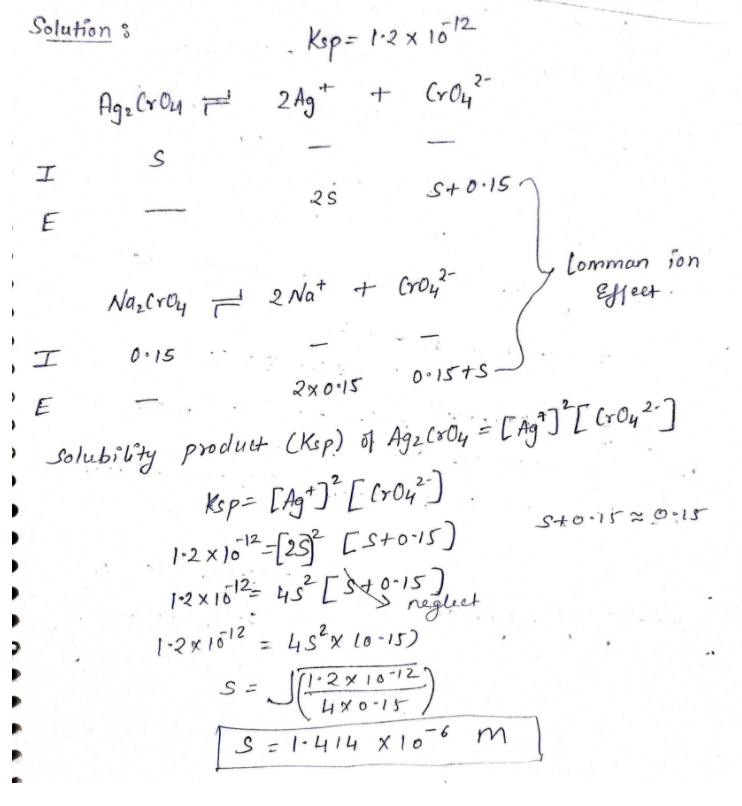 Solution :
Ksp = 1.2 x 10^-12
Ag2CrO4 ⇌ 2Ag^+ + CrO4^2-
I S — —
E — 2S S+0.15
Comman ion
Effect.
Na2CrO4 ⇌ 2Na^+ + CrO4^2-
I 0.15 — —
E — 2x0.15 0.15+S
Solubility product (Ksp) of Ag2CrO4 = [Ag^+]^2[CrO4^2-]
Ksp = [Ag^+]^2 [CrO4^2-]
S+0.15 ≈ 0.15
1.2 x 10^-12 = [2S]^2 [S+0.15)
1.2 x 10^-12 = 4S^2 [S+0.15]
neglect
1.2 x 10^-12 = 4S^2 x (0.15)
S = √(1.2 x 10^-12 / 4x0.15)
S = 1.414 x 10^-6 m